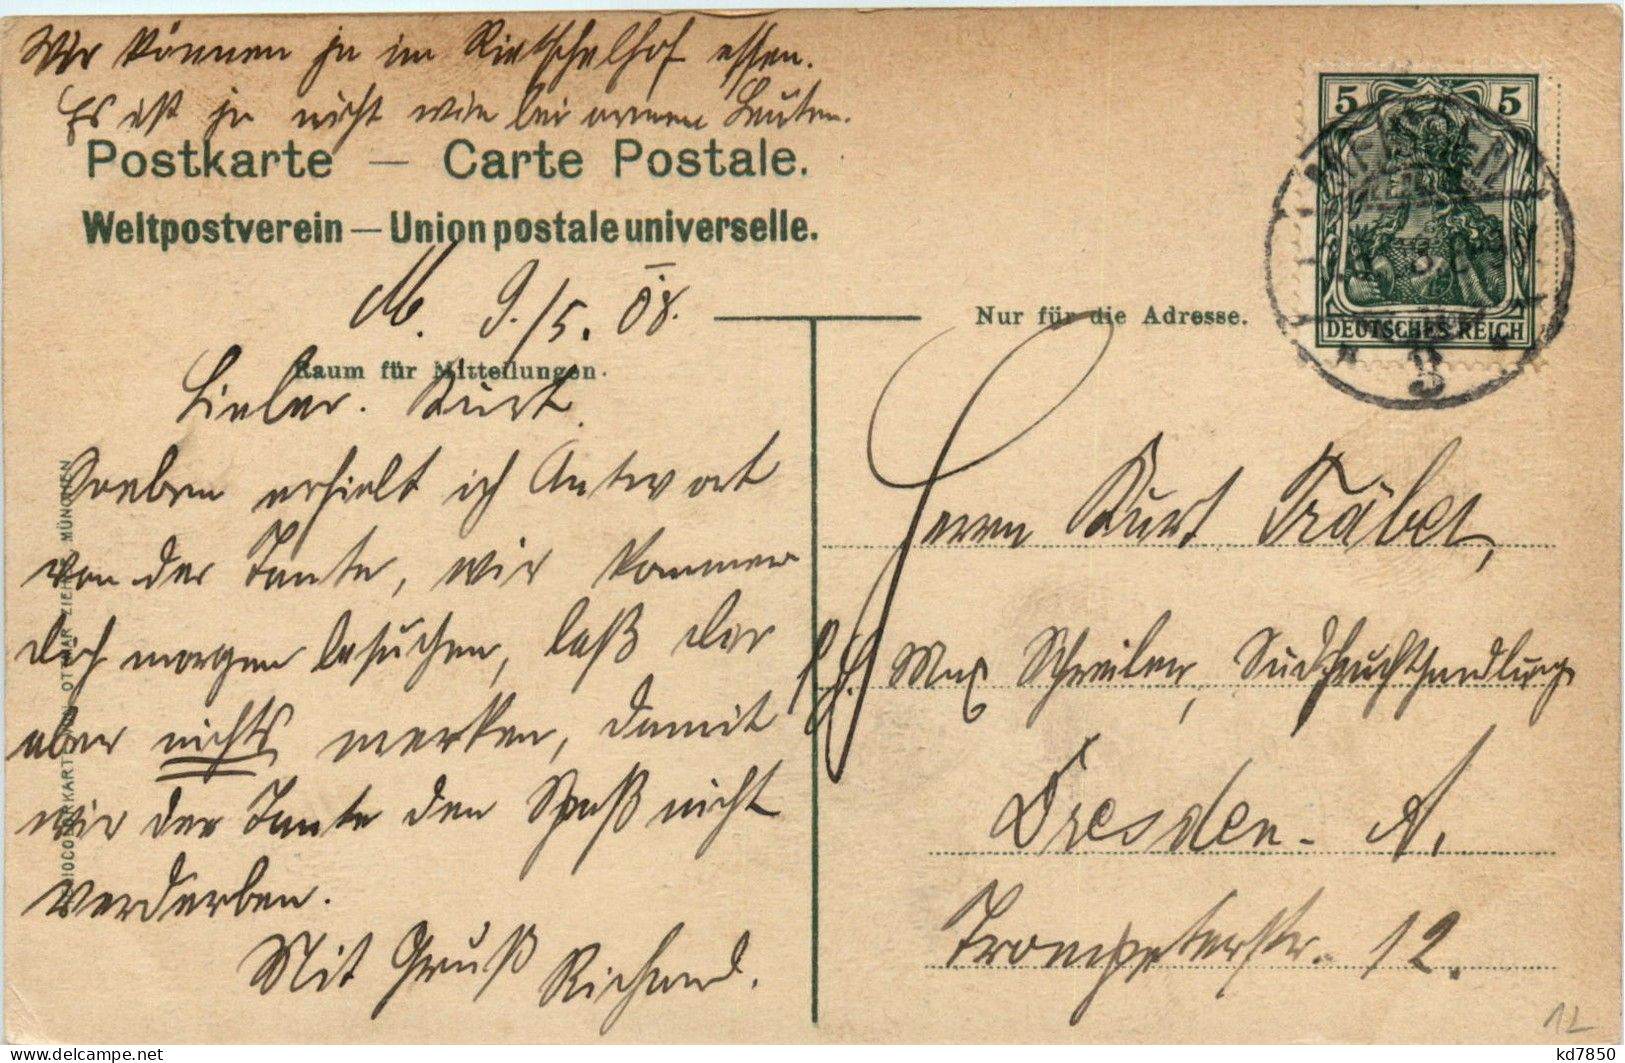 Wir können ja im Rietschelhof essen.
Es ist ja nicht wie bei armen Leuten.
Postkarte — Carte Postale.
Weltpostverein — Union postale universelle.
M. 9./5. 08.
Raum für Mitteilungen.
Lieber Kurt.
Soeben erhielt ich Antwort
von der Tante, wir kommen
dich morgen besuchen, laß dir
aber nichts merken, damit
wir der Tante den Spaß nicht
verderben.
Mit Gruß Richard.
OTTMAR ZIEHER, MÜNCHEN
5 5
DEUTSCHES REICH
Nur für die Adresse.
Herrn Kurt Träber,
Max Schreiber, Südfruchthandlung
Dresden-A.
Trompeterstr. 12.
12
kd7850